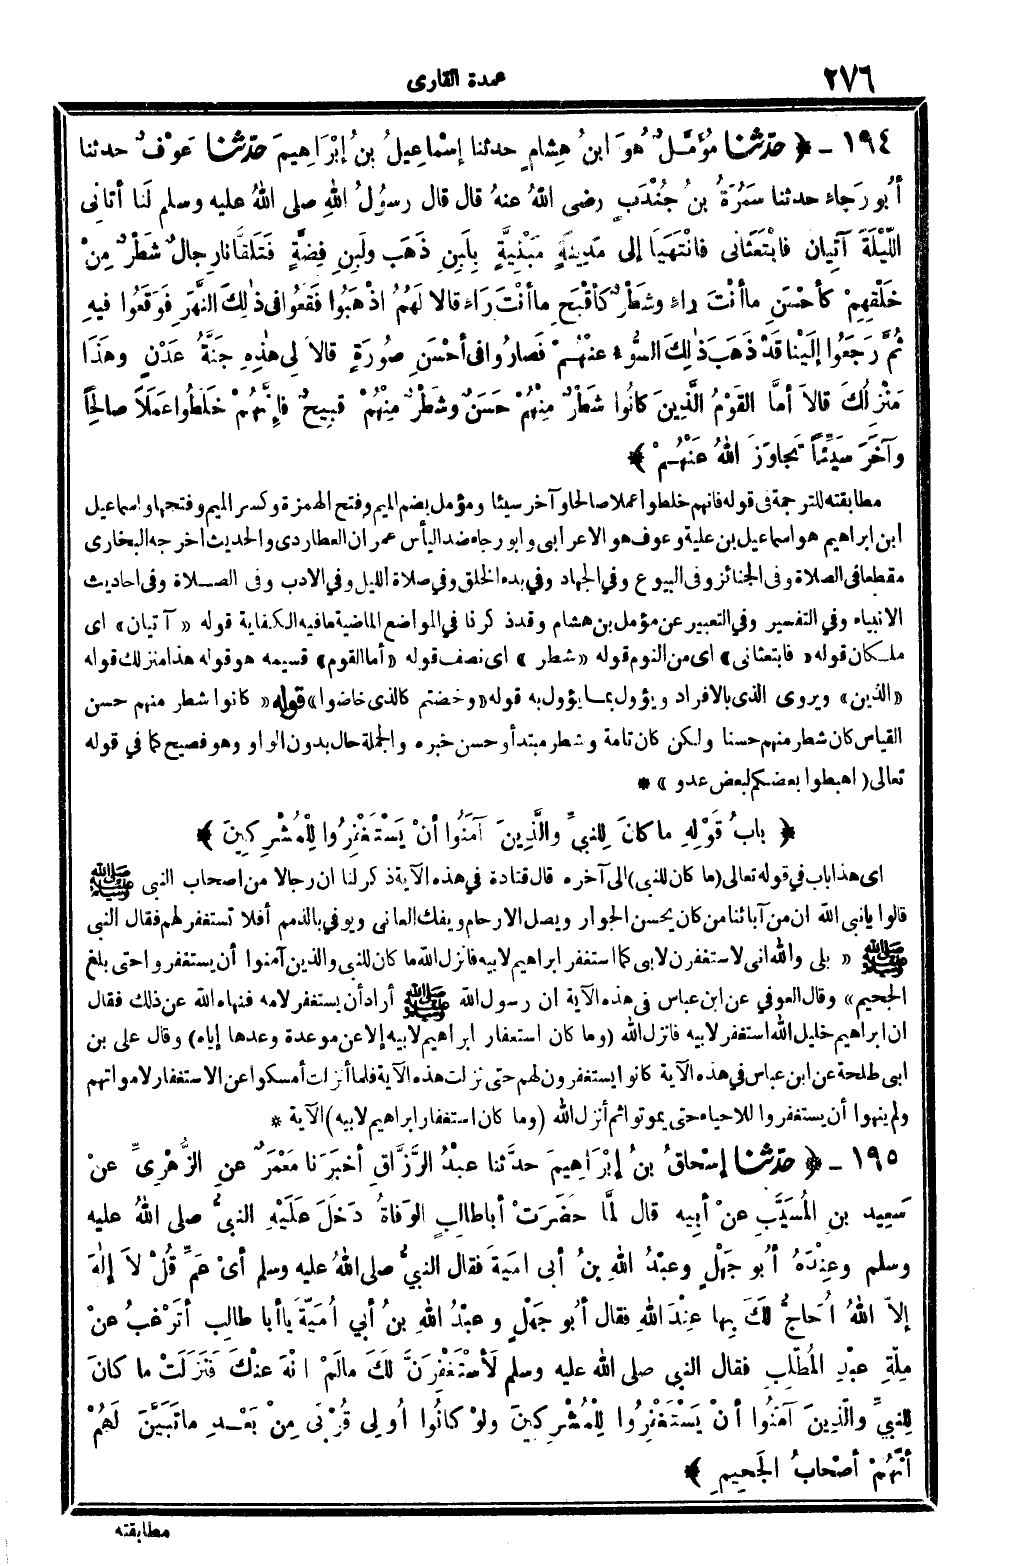 ٢٧٦
عمدة القارى
١٩٤ ـ ﴿ حَدَّثَنَا مُؤَمَّلٌ هُوَ ابنُ هِشامٍ حدثنا إسْماعِيلُ بنُ إبْرَاهِيمَ حَدَّثَنَا عَوْفٌ حدثنا
أبُو رَجَاءٍ حدثنا سَمُرَةُ بنُ جُنْدَبٍ رضى اللهُ عنهُ قال قال رسولُ اللهِ صلى اللهُ عليه وسلم لَنا أتانِى
اللَّيْلَةَ آتِيانِ فابْتَعَثانى فانْتَهَيَا إلى مَدِينَةٍ مَبْنِيَّةٍ بِلَبِنِ ذَهَب ولَبِنِ فِضَّةٍ فَتَلَقَّانا رِجالٌ شَطْرٌ مِنْ
خَلْقِهِمْ كأحْسَنِ ما أنْتَ راءٍ وشَطْرٌ كأقْبَحِ ما أنْتَ رَاءٍ قالا لَهُمُ اذْهَبُوا فَقَعُوا فى ذٰلِكَ النَّهَرِ فَوَقَعُوا فيهِ
ثُمَّ رَجَعُوا إلَيْنا قَدْ ذَهَبَ ذٰلِكَ السُّوءُ عنْهُمْ فَصارُوا فى أحْسَنِ صُورَةٍ قالاَ لِى هٰذِهِ جَنَّةُ عَدْنٍ وهَذَا
مَنْزِلُكَ قالاَ أمَّا القَوْمُ الَّذِينَ كانُوا شَطْرٌ مِنْهُمْ حَسَنٌ وشَطْرٌ مِنْهُمْ قبِيحٌ فإنَّهُمْ خَلَطُوا عَمَلاً صالِحًا
وآخَرَ سَيِّئًا تَجاوَزَ اللهُ عَنْهُمْ ﴾
مطابقته للترجمة فى قوله فانهم خلطوا عملا صالحا وآخر سيئا ومؤمل بضم الميم وفتح الهمزة وكسر الميم وفتحها واسماعيل
ابن ابراهيم هو اسماعيل بن علية وعوف هو الاعرابى وابو رجاء ضد اليأس عمران العطاردى والحديث اخرجه البخارى
مقطعا فى الصلاة وفى الجنائز وفى البيوع وفي الجهاد وفي بدء الخلق وفي صلاة الليل وفي الادب وفى الصلاة وفى احاديث
الانبياء وفي التفسير وفي التعبير عن مؤمل بن هشام وقد ذكرنا في المواضع الماضية ما فيه الكفاية قوله « آتيان» اى
ملكان قوله « فابتعثانى» اى من النوم قوله «شطر » اى نصف قوله «أما القوم» قسيمه هو قوله هذا منزلك قوله
«الذين» ويروى الذى بالافراد ويؤول بما يؤول به قوله «وخضتم كالذى خاضوا» قوله « كانوا شطر منهم حسن
القياس كان شطر منهم حسنا ولكن كان تامة وشطر مبتدأ وحسن خبره والجملة حال بدون الواو وهو فصيح كما في قوله
تعالى ( اهبطوا بعضكم لبعض عدو ) *
﴿ بابُ قَوْلِهِ ما كانَ لِلنبيِّ والَّذِينَ آمَنُوا أنْ يَسْتَغْفِرُوا لِلْمُشْرِكِينَ ﴾
اى هذا باب في قوله تعالى (ما كان للنبى) الى آخره قال قتادة في هذه الآية ذكر لنا ان رجالا من اصحاب النبى ﷺ
قالوا يانبى الله ان من آبائنا من كان يحسن الجوار ويصل الارحام ويفك العانى ويوفى بالذمم أفلا تستغفر لهم فقال النبى
ﷺ « بلى والله انى لاستغفرن لابى كما استغفر ابراهيم لابيه فانزل الله ما كان للنبى والذين آمنوا أن يستغفروا حتى بلغ
الجحيم» وقال العوفي عن ابن عباس فى هذه الآية ان رسول الله ﷺ أراد أن يستغفر لامه فنهاه الله عن ذلك فقال
ان ابراهيم خليل الله استغفر لابيه فانزل الله (وما كان استغفار ابراهيم لابيه إلا عن موعدة وعدها إياه) وقال على بن
ابى طلحة عن ابن عباس في هذه الآية كانوا يستغفرون لهم حتى نزلت هذه الآية فلما أنزلت أمسكوا عن الاستغفار لامواتهم
ولم ينهوا أن يستغفروا للاحياء حتى يموتوا ثم أنزل الله (وما كان استغفار ابراهيم لابيه) الآية *
١٩٥ ـ ﴿ حَدَّثَنَا إسْحاقُ بنُ إبْرَاهِيمَ حدَّثنا عبدُ الرَّزَّاقِ أخبَرَنا مَعْمَرٌ عنِ الزُّهْرِىِّ عنْ
سَعِيدِ بنِ المُسَيَّبِ عنْ أبِيهِ قال لَمَّا حَضَرَتْ أباطالِبٍ الوَفاةُ دَخَلَ عَلَيْهِ النبيُّ صلى اللهُ عليه
وسلم وعِنْدَهُ أبُو جَهْلٍ وعبْدُ اللهِ بنُ أبى امَيةَ فقال النبيُّ صلى اللهُ عليه وسلم أىْ عَمِّ قُلْ لاَ إلٰهَ
إلاَّ اللهُ أُحَاجُّ لَكَ بِها عِنْدَ اللهِ فقال أبُو جَهْلٍ وعبْدُ اللهِ بنُ أبي أُمَيَّةَ ياأبا طالِبٍ أتَرْغَبُ عنْ
مِلَّةِ عبْدِ المُطَّلِبِ فقال النبي صلى الله عليه وسلم لَأسْتَغْفِرَنَّ لَكَ مالَمْ انْهَ عنْكَ فَنَزَلَتْ ما كانَ
لِلنبيِّ والَّذِينَ آمَنُوا أنْ يَسْتَغْفِرُوا لِلْمُشْرِكِينَ ولوْ كانُوا أُولِى قُرْبَى مِنْ بَعْدِ ماتَبَيَّنَ لَهُمْ
أنَّهُمْ أصْحابُ الجَحِيمِ ﴾
مطابقته